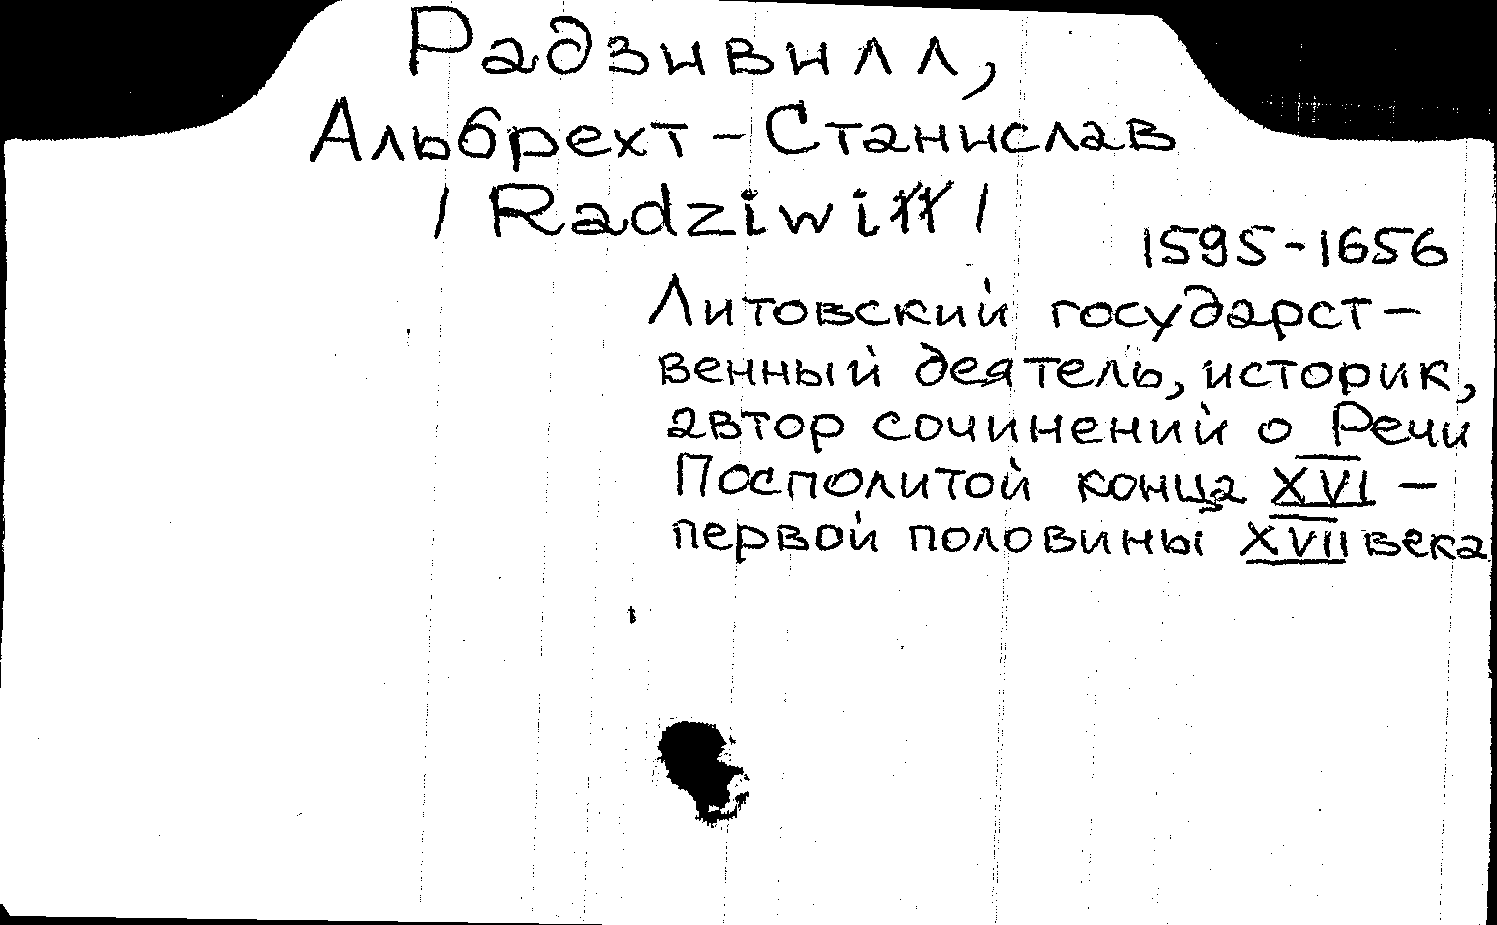 Радзивилл,
Альбрехт-Станислав
/ Radziwiłł /
1595-1656
Литовский государст-
венный деятель, историк,
автор сочинений о Речи
Посполитой конца XVI -
первой половины XVII века